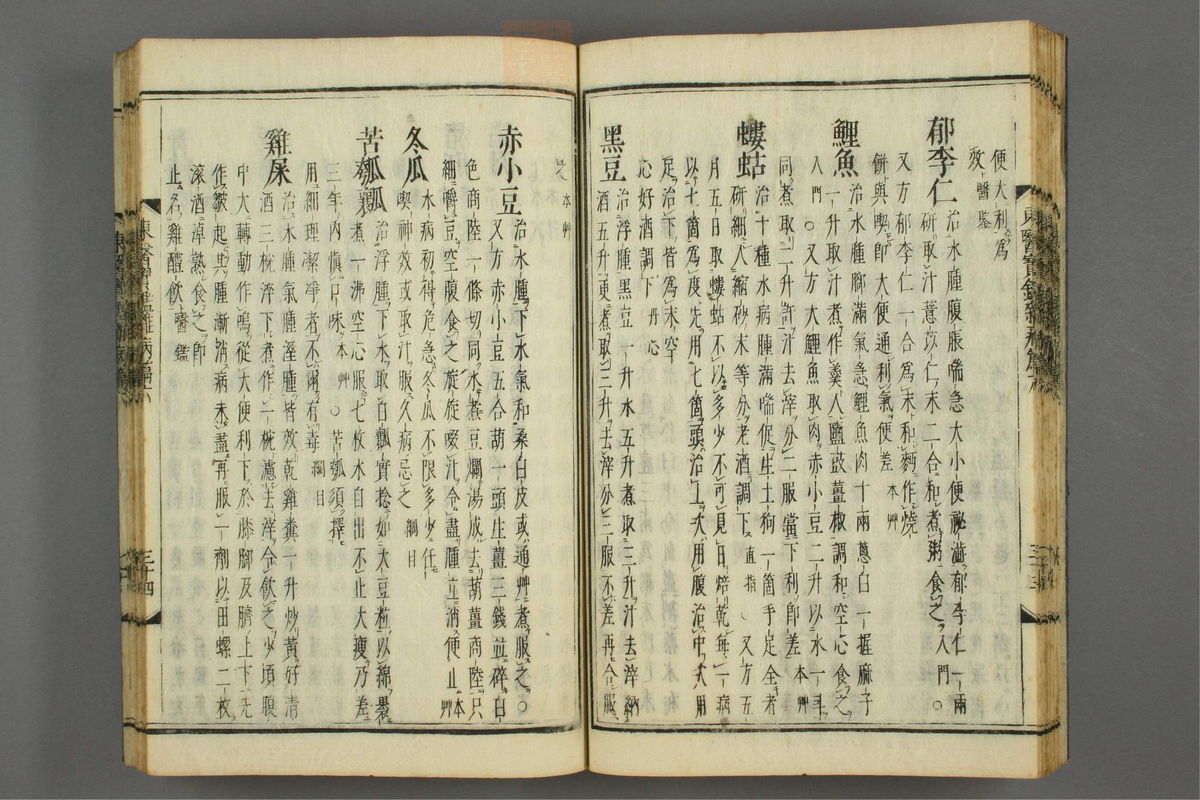 便大利爲
效醫鑑
郁李仁治水腫腹脹喘急大小便祕澁郁李仁一兩
研取汁薏苡仁末二合和煮粥食之入門○
又方郁李仁一合爲末和麪作燒
餠與喫卽大便通利氣便差本艸
鯉魚治水腫脚滿氣急鯉魚肉十兩葱白一握麻子
一升取汁煮作羹入鹽豉薑椒調和空心食之
入門○又方大鯉魚取肉赤小豆二升以水一斗
同煮取二升許汁去滓分二服當下利卽差本艸
螻蛄治十種水病腫滿喘促生土狗一箇手足全者
研細入縮砂末等分老酒調下直指○又方五
月五日取螻蛄不以多少不可見日焙乾每一病
以七箇爲度先用七箇頭治上次用腹治中次用
足治下皆爲末空
心好酒調下丹心
黑豆治浮腫黑豆一升水五升煮取三升汁去滓納
酒五升更煮取三升去滓分三服不差再合服
之本艸
赤小豆治水腫下水氣和桑白皮或通艸煮服之○
又方赤小豆五合葫一頭生薑三錢並碎白
色商陸一條切同水煮豆爛湯成去葫薑商陸只
細嚼豆空腹食之旋旋啜汁令盡腫立消便止本艸
冬瓜水病初得危急冬瓜不限多少任
喫神效或取汁服久病忌之綱目
苦瓠瓤治浮腫下水取白瓤實捻如大豆粒以綿裹
煮一沸空心服七枚水自出不止大瘦乃差
三年內愼口味本艸○苦瓠須擇
用細理潔淨者不爾有毒綱目
雞屎治水腫氣腫溼腫皆效乾雞糞一升炒黃好淸
酒三椀淬下煮作一椀濾去滓令飮之少頃腹
中大轉動作鳴從大便利下於膝脚及臍上下先
作皺起其腫漸消病未盡再服一劑以田螺二枚
滚酒淖熟食之卽
止名雞醴飮醫鑑
三十三
三十四